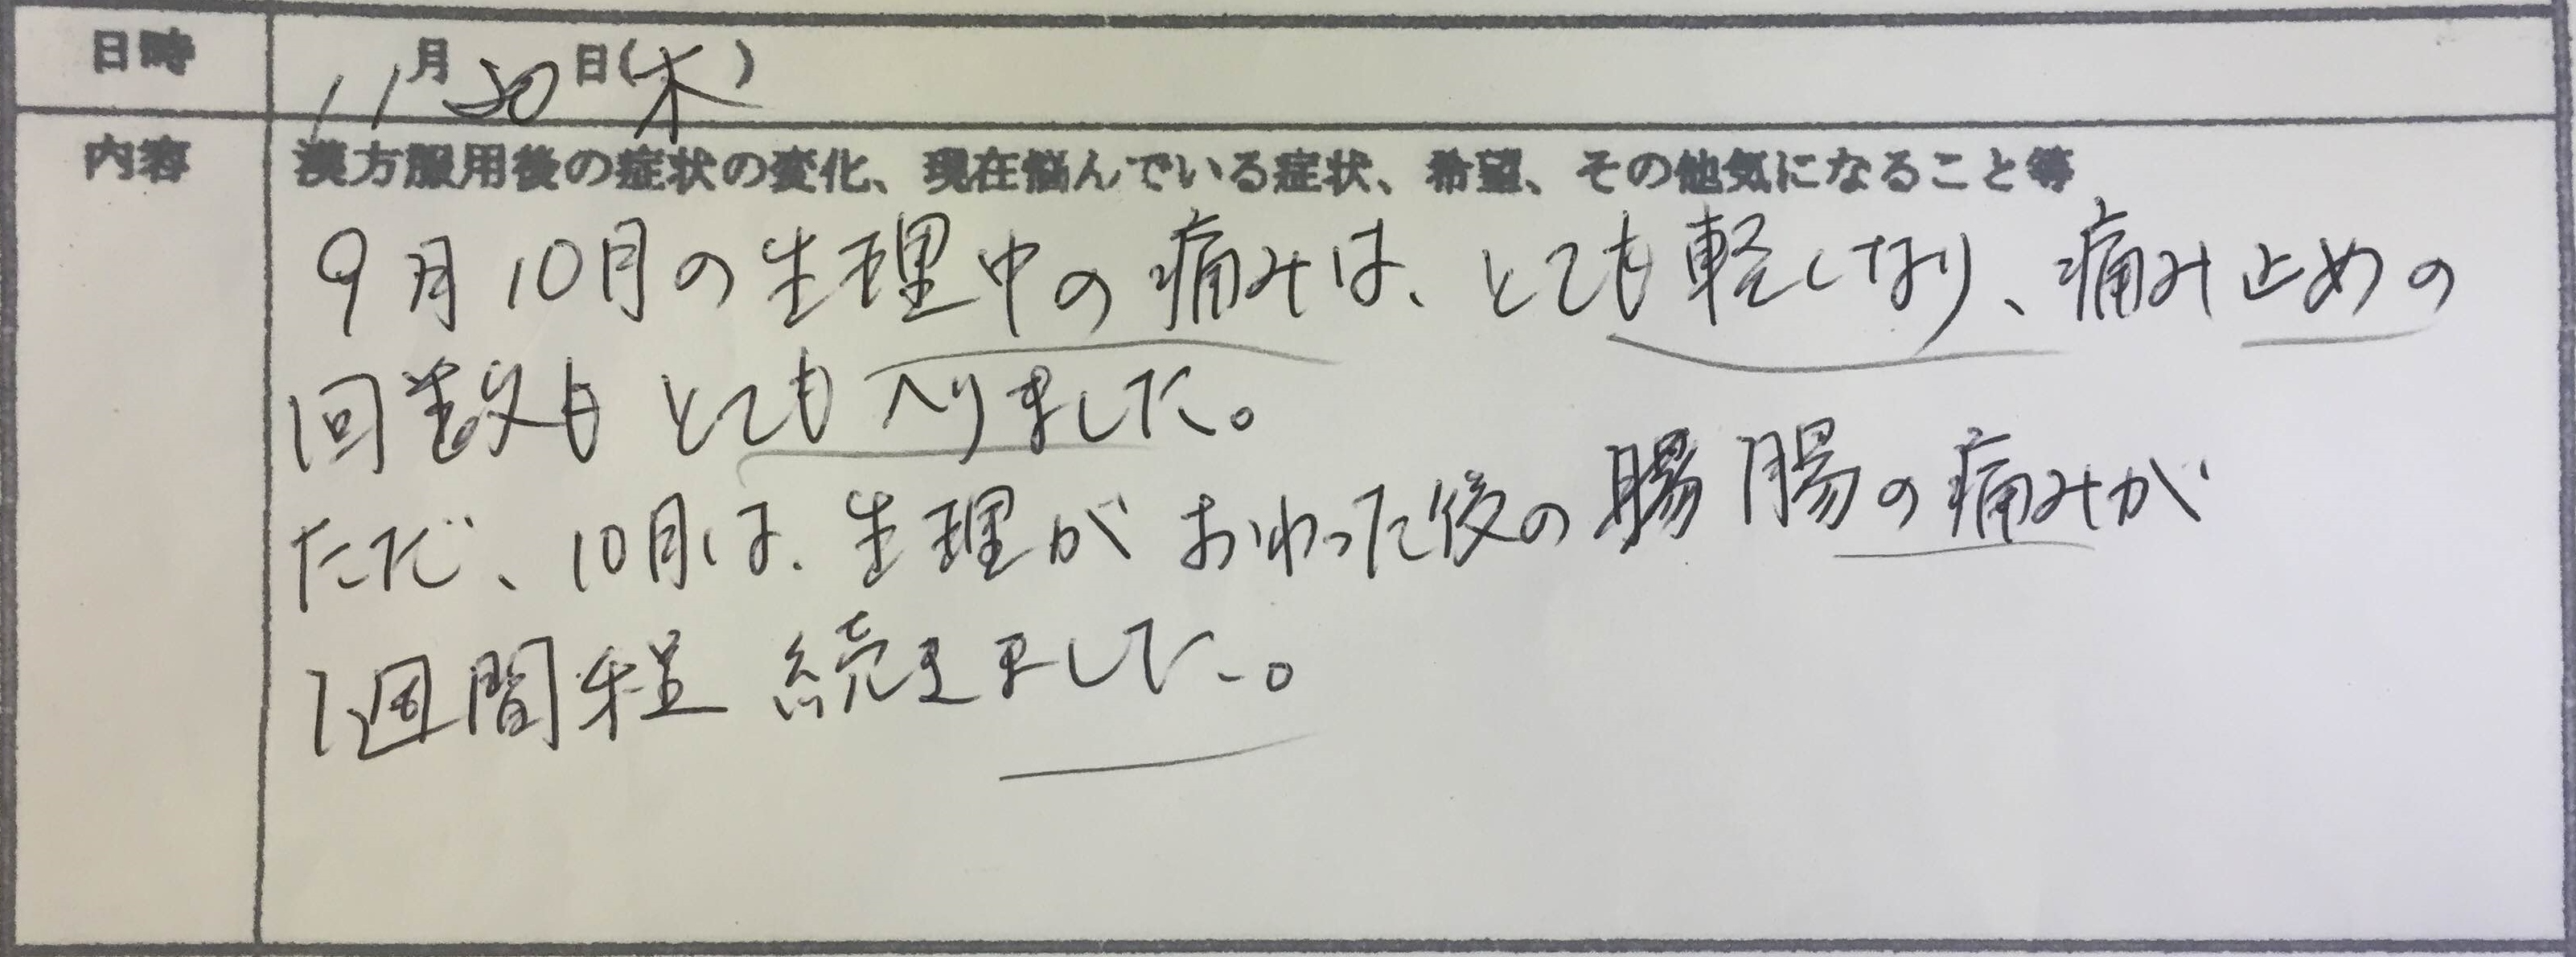 日時 11月30日(木)
内容 漢方服用後の症状の変化、現在悩んでいる症状、希望、その他気になること等
9月10月の生理中の痛みは、とても軽くなり、痛み止めの
回数もとてもへりました。
ただ、10月は、生理がおわった後の腸腸の痛みが
1週間程続きました。